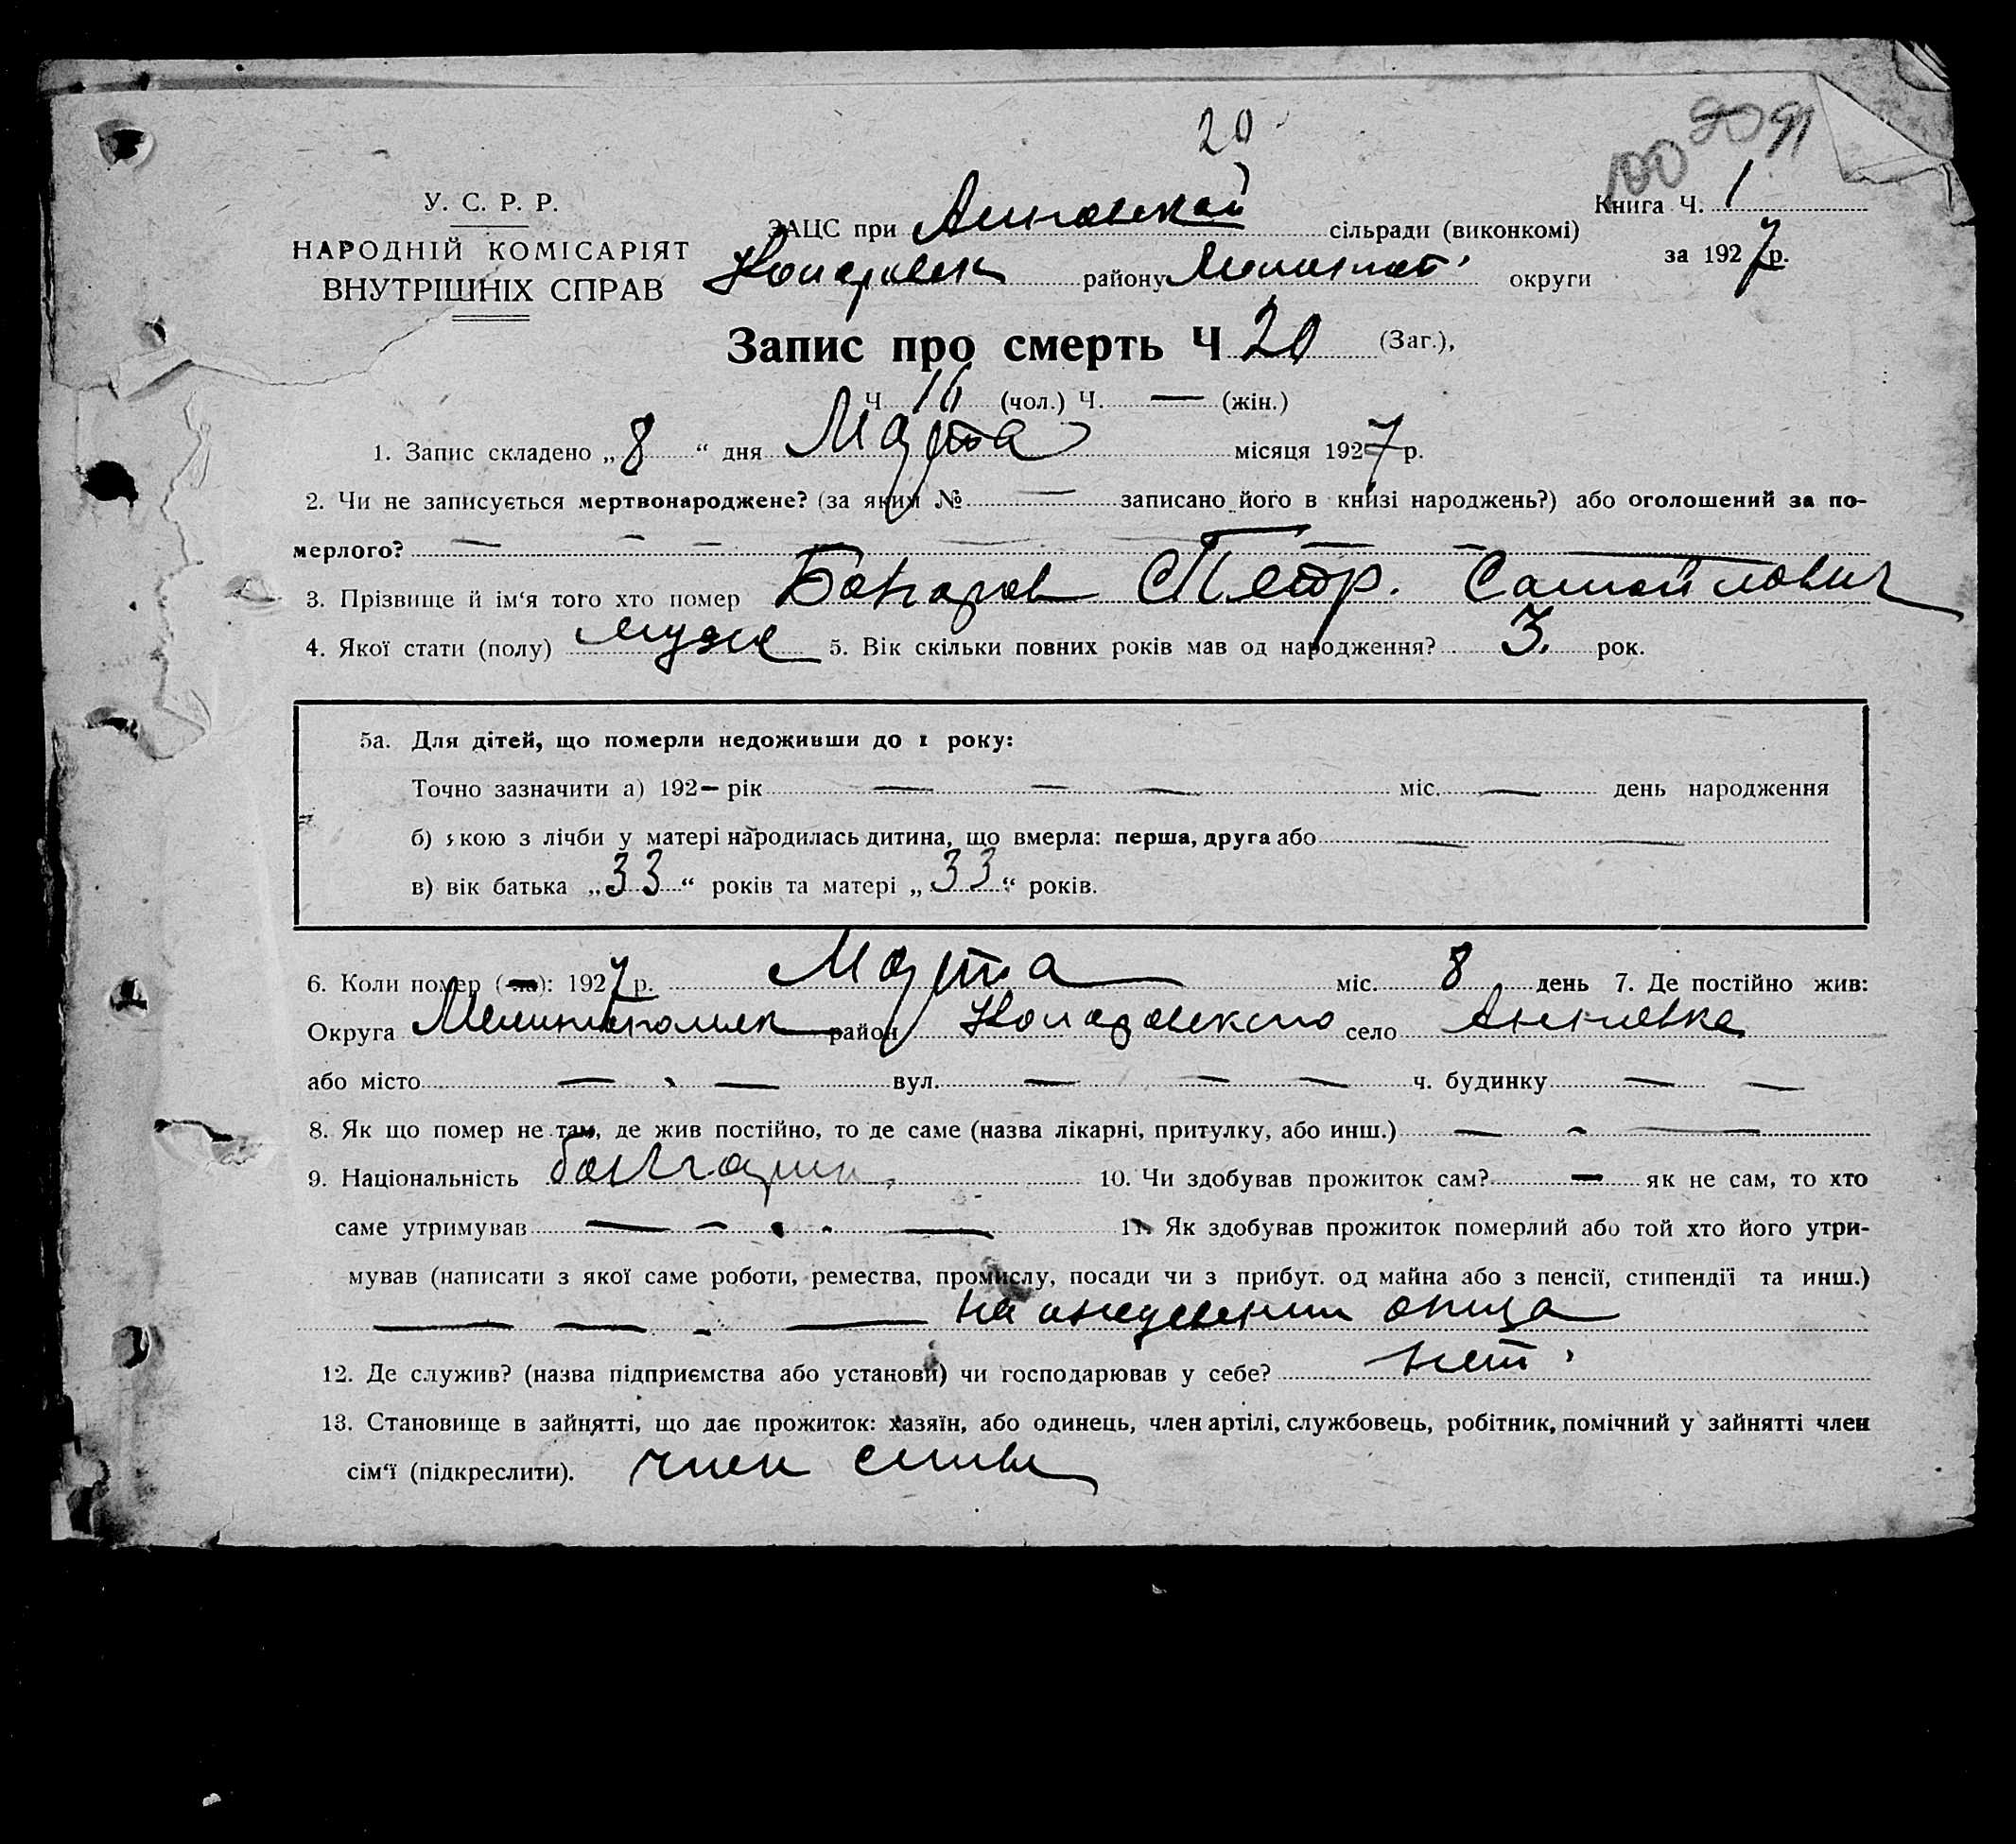 20
100 90 91
У. С. Р. Р.
НАРОДНІЙ КОМІСАРІЯТ
ВНУТРІШНІХ СПРАВ
ЗАЦС при Анновской сільради (виконкомі)
Книга Ч. 1
району Мелитоп округи
за 1927 р.
Запис про смерть Ч 20 (Заг.),
Ч 16 (чол.) Ч. — (жін.)
1. Запис складено „8“ дня Марта місяця 1927 р.
2. Чи не записується мертвонароджене? (за яким № — записано його в книзі народжень?) або оголошений за по-
мерлого? — - - — — - —
3. Прізвище й ім‘я того хто помер Петр. Самойлович
4. Якої стати (полу) муж 5. Вік скільки повних років мав од народження? 3. рок.
5а. Для дітей, що померли недоживши до 1 року:
Точно зазначити а) 192— рік — — — міс. — день народження
б) якою з лічби у матері народилась дитина, що вмерла: перша, друга або — —
в) вік батька „33“ років та матері „33“ років.
6. Коли помер (-ла): 1927 р. Марта міс. 8 день 7. Де постійно жив:
Округа Мелитопольск район село Анновка
або місто — - — вул. — — — ч. будинку — —
8. Як що помер не там, де жив постійно, то де саме (назва лікарні, притулку, або инш.) — - —
9. Національність болгарин, 10. Чи здобував прожиток сам? — як не сам, то хто
саме утримував — - . . — 11. Як здобував прожиток померлий або той хто його утри-
мував (написати з якої саме роботи, ремества, промислу, посади чи з прибут. од майна або з пенсії, стипендії та инш.)
— — - — на иждевении отца
12. Де служив? (назва підприємства або установи) чи господарював у себе? нет
13. Становище в зайнятті, що дає прожиток: хазяїн, або одинець, член артілі, службовець, робітник, помічний у зайнятті член
сім‘ї (підкреслити). член семьи